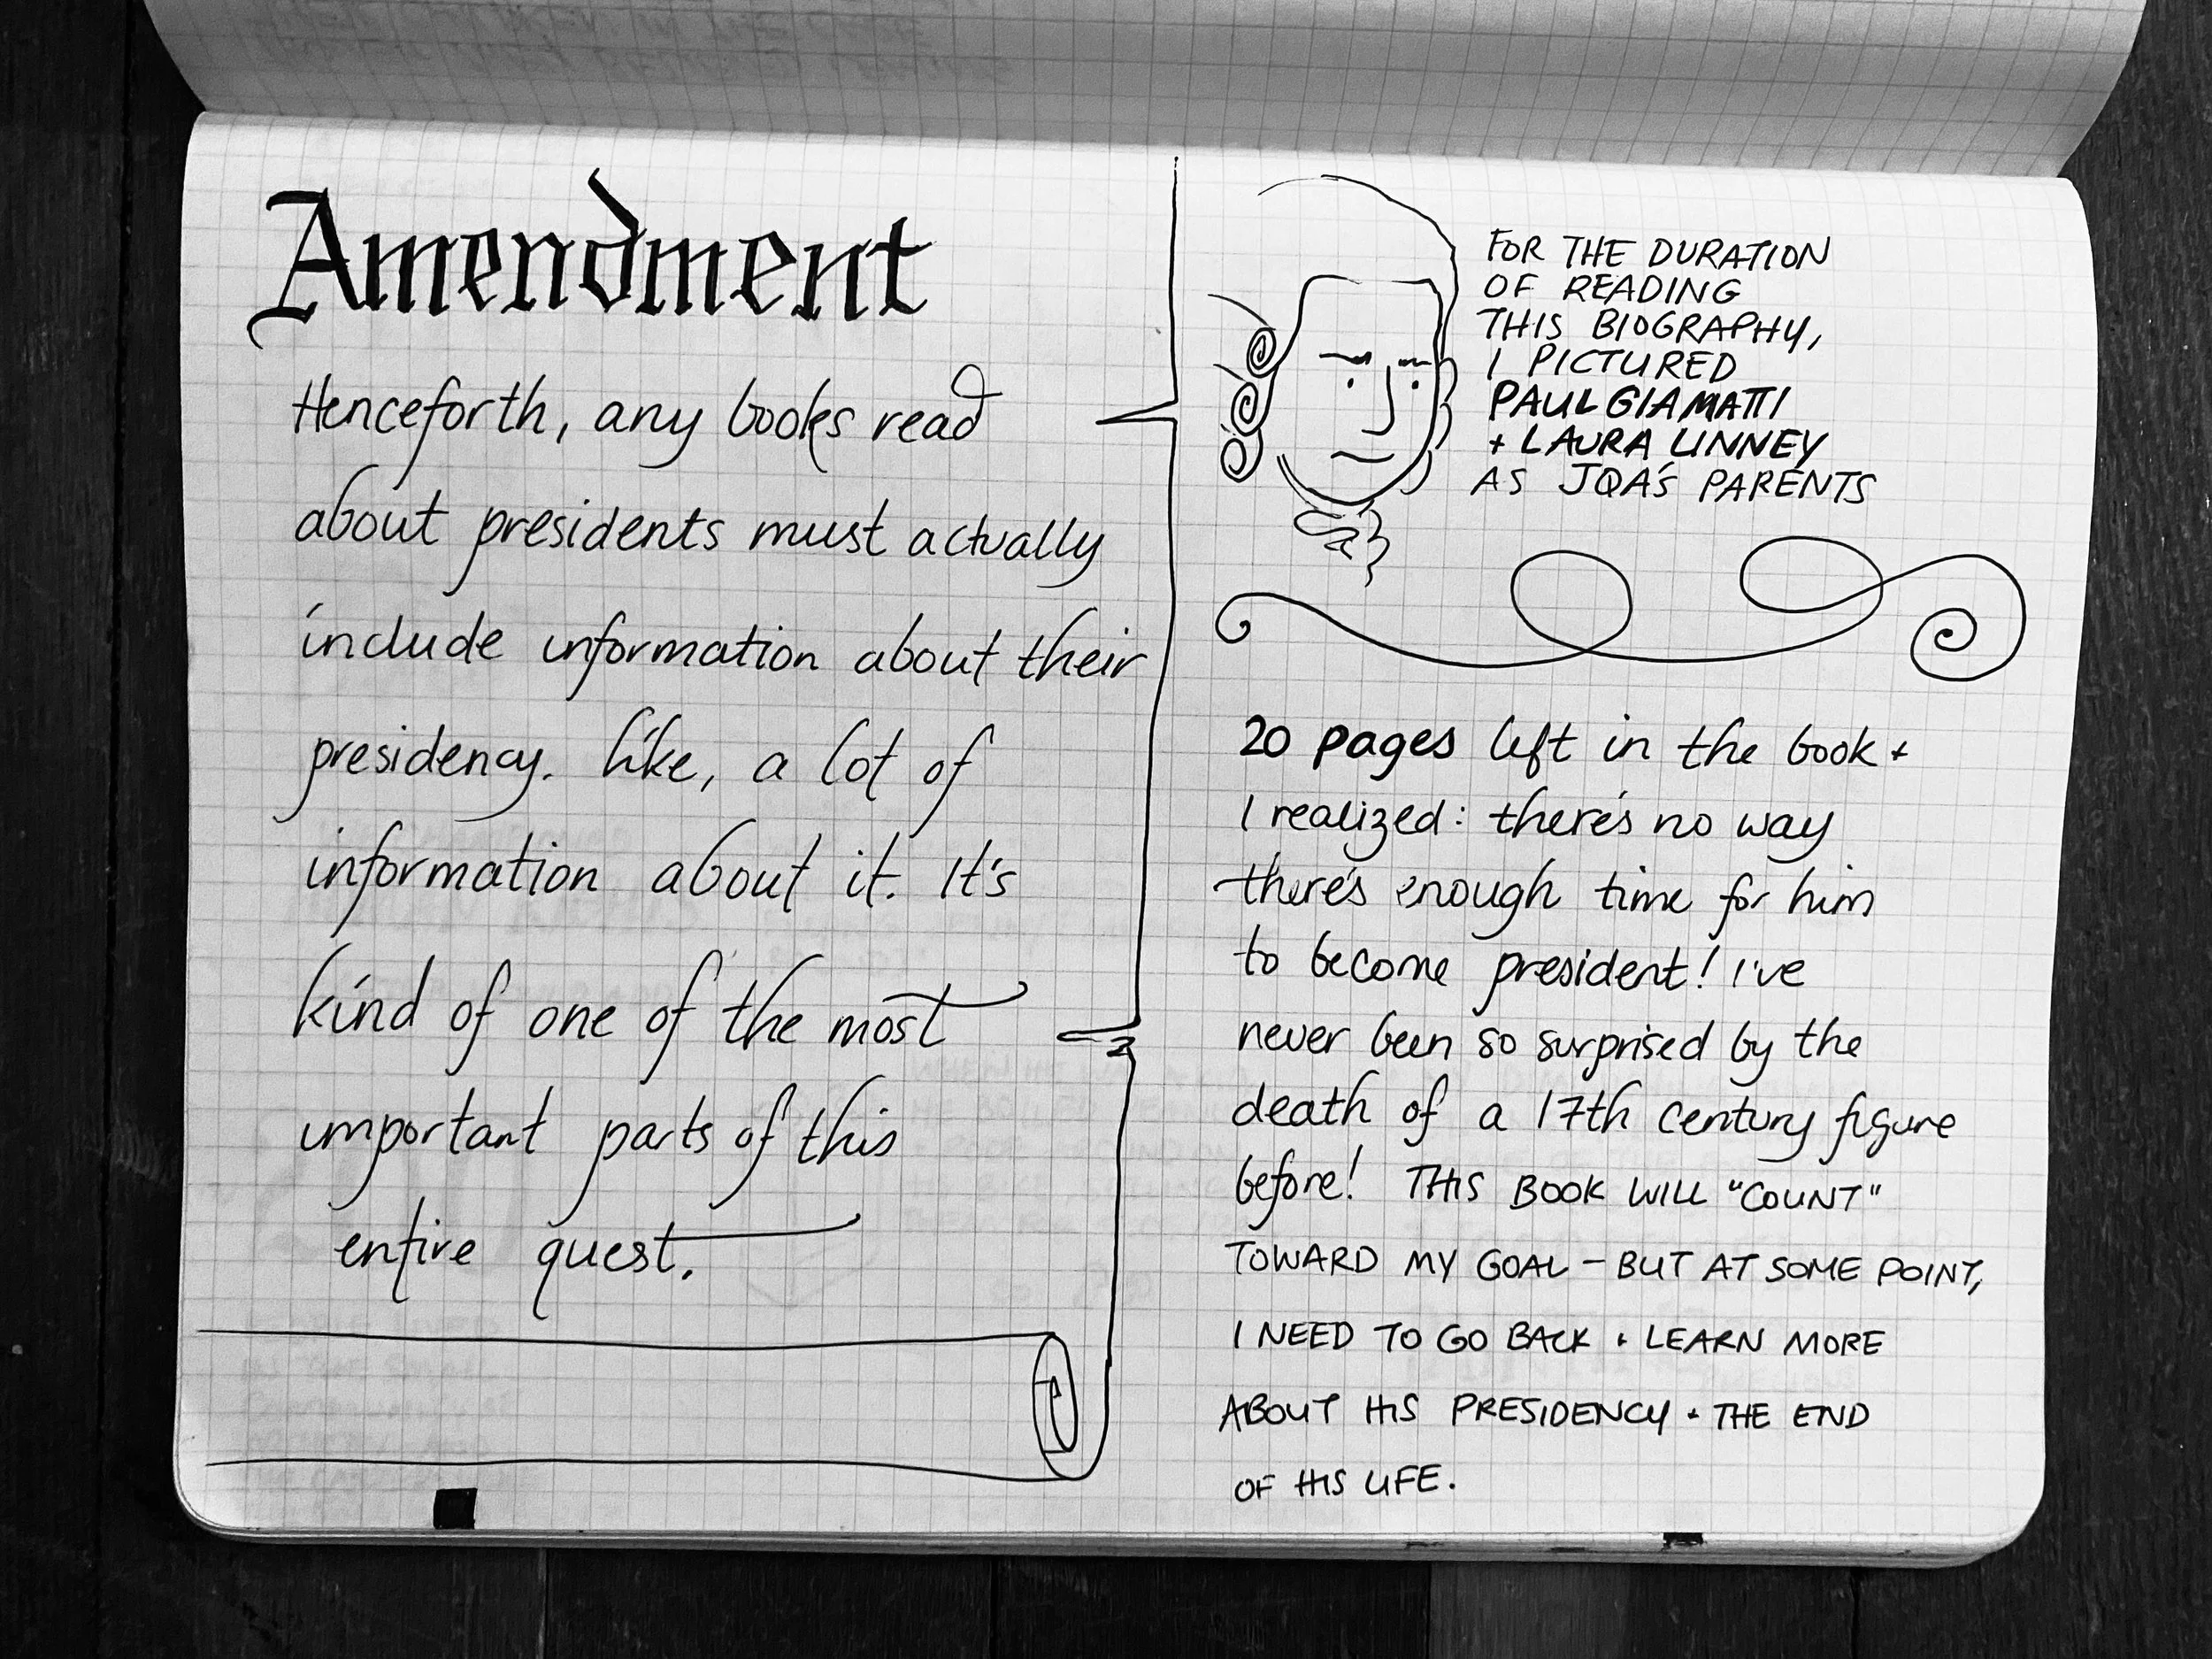 Amendment
Henceforth, any books read
about presidents must actually
include information about their
presidency. Like, a lot of
information about it. It's
kind of one of the most
important parts of this
entire quest.
FOR THE DURATION
OF READING
THIS BIOGRAPHY,
I PICTURED
PAUL GIAMATTI
+ LAURA LINNEY
AS JQA'S PARENTS
20 pages left in the book +
I realized: there's no way
there's enough time for him
to become president! I've
never been so surprised by the
death of a 17th century figure
before! THIS BOOK WILL "COUNT"
TOWARD MY GOAL - BUT AT SOME POINT,
I NEED TO GO BACK + LEARN MORE
ABOUT HIS PRESIDENCY + THE END
OF HIS LIFE.